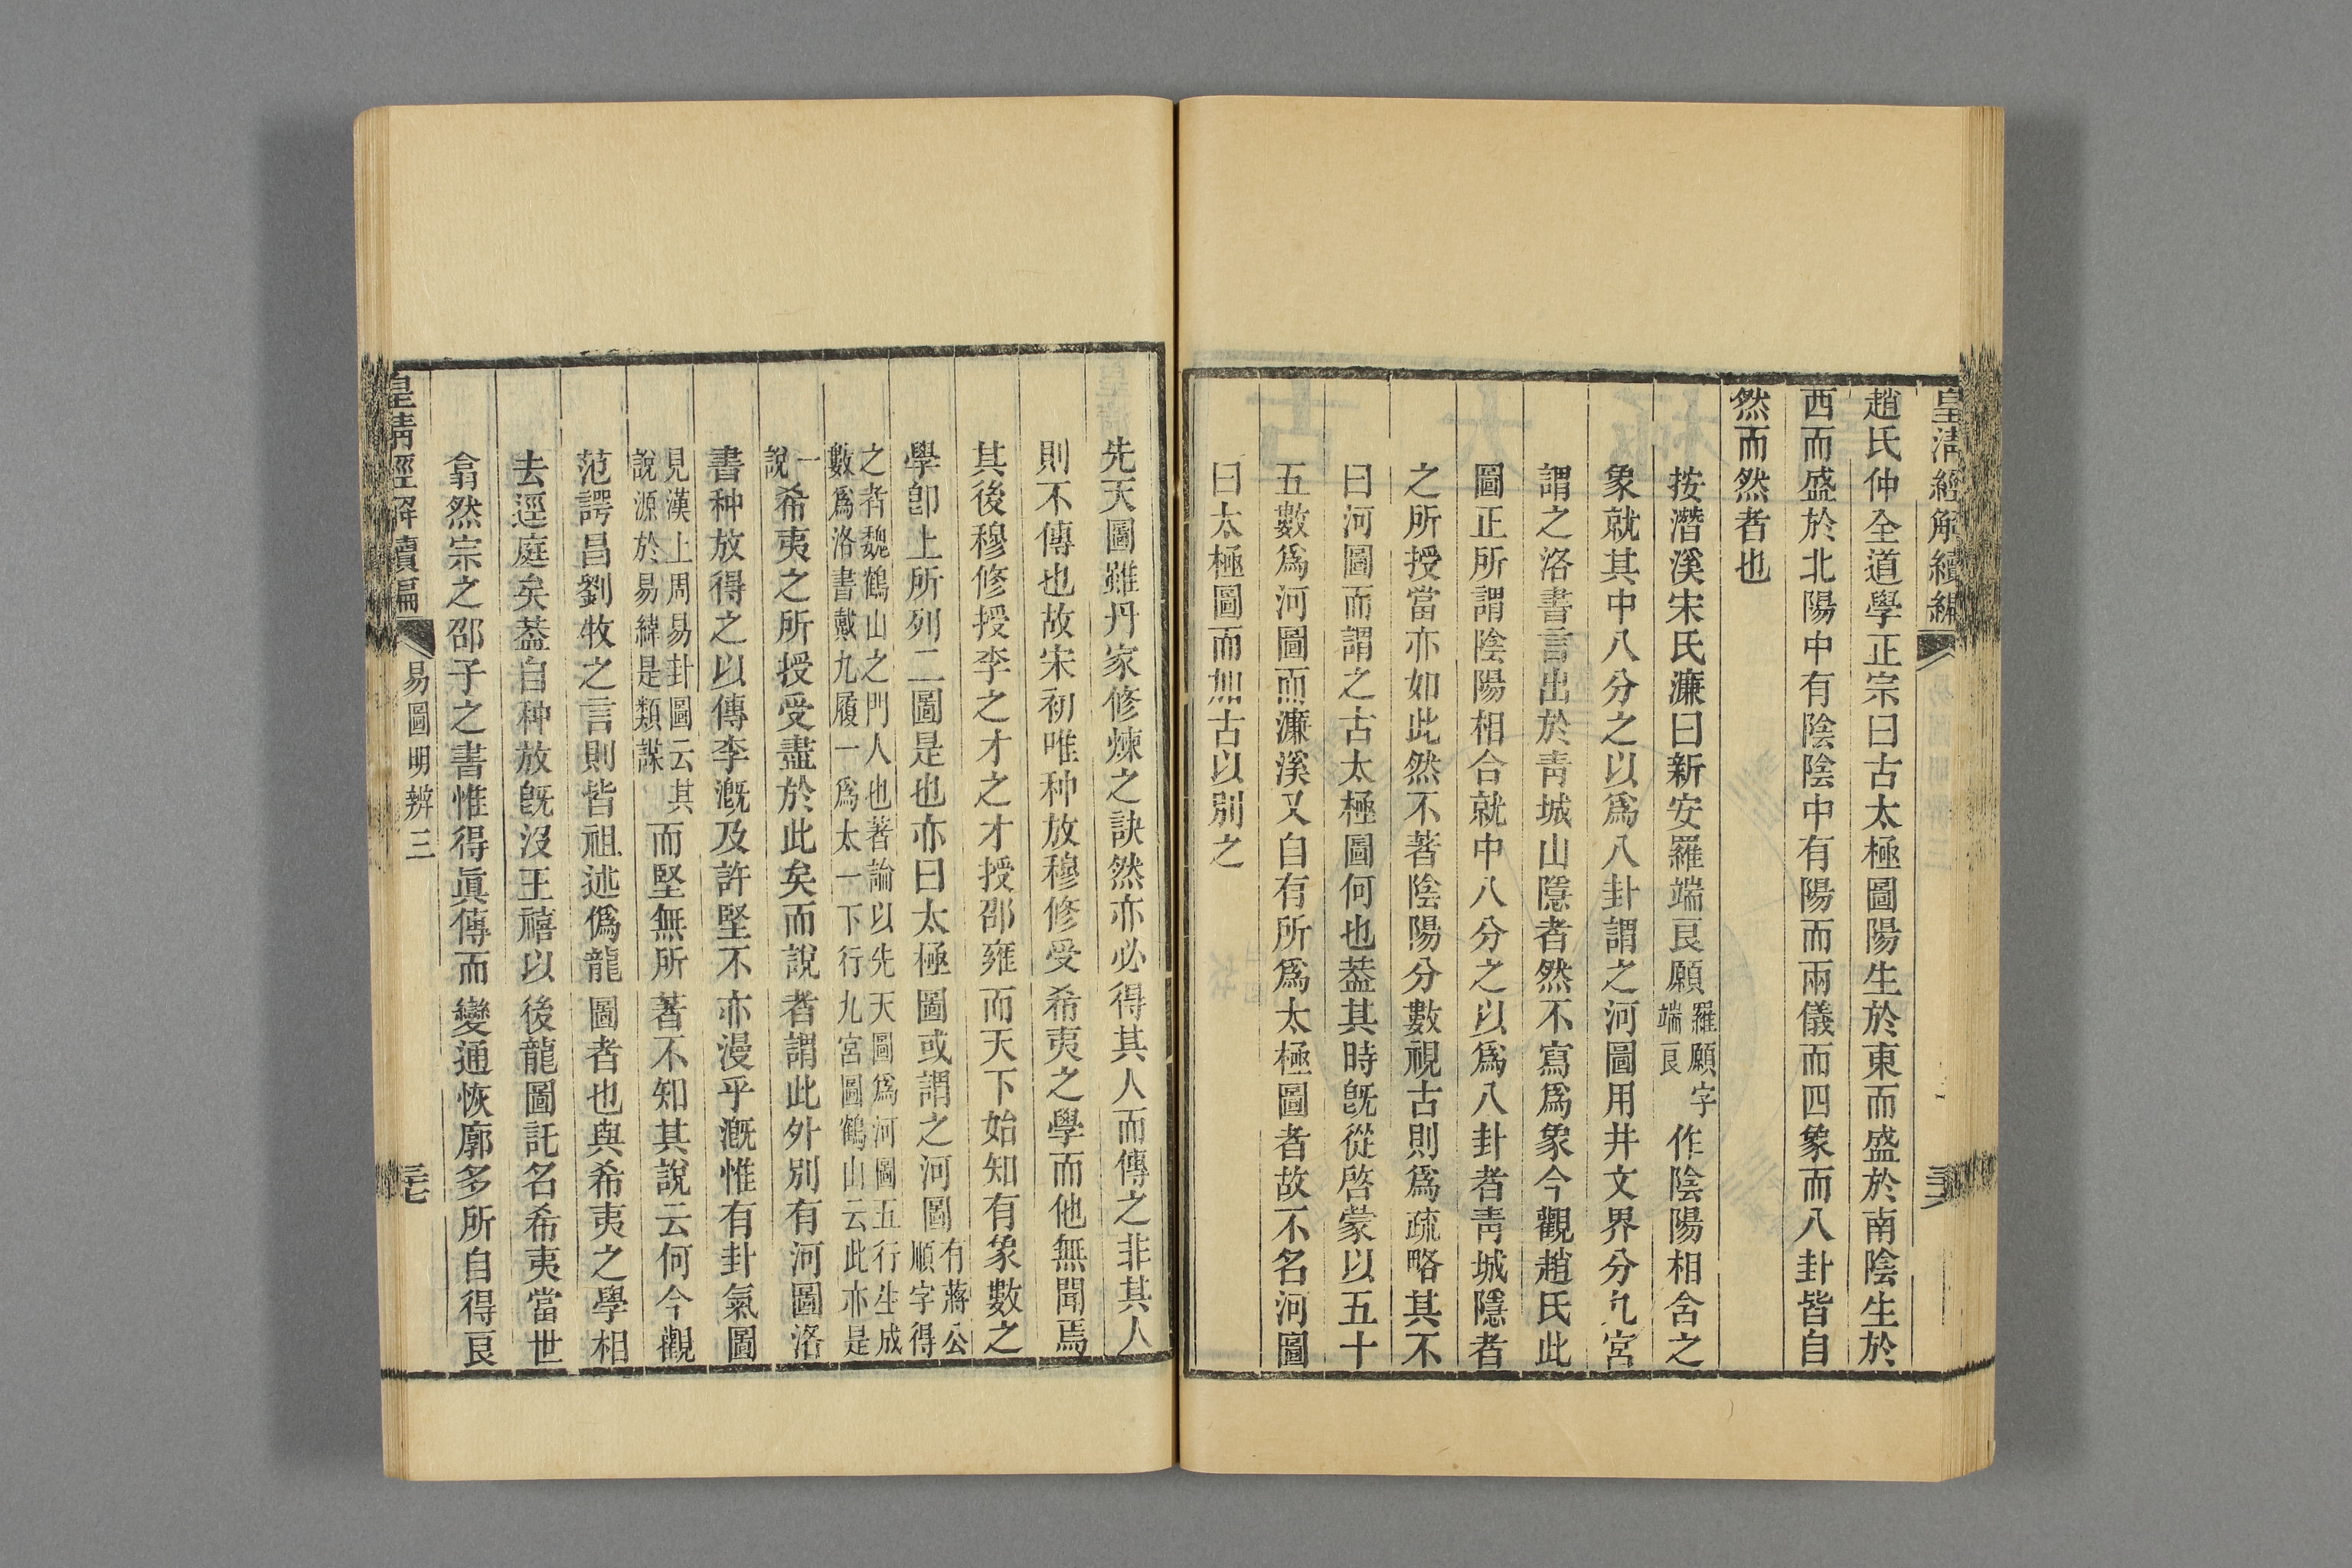 皇淸經解續編
趙氏仲全道學正宗曰古太極圖陽生於東而盛於南陰生於
西而盛於北陽中有陰陰中有陽而兩儀而四象而八卦皆自
然而然者也
按潛溪宋氏濂曰新安羅端良願羅願字端良作陰陽相含之
象就其中八分之以爲八卦謂之河圖用井文界分九宮
謂之洛書言出於靑城山隱者然不寫爲象今觀趙氏此
圖正所謂陰陽相合就中八分之以爲八卦者靑城隱者
之所授當亦如此然不著陰陽分數視古則爲疏略其不
曰河圖而謂之古太極圖何也葢其時旣從啓蒙以五十
五數爲河圖而濂溪又自有所爲太極圖者故不名河圖
曰太極圖而加古以別之
先天圖雖丹家修煉之訣然亦必得其人而傳之非其人
則不傳也故宋初唯种放穆修受希夷之學而他無聞焉
其後穆修授李之才之才授邵雍而天下始知有象數之
學卽上所列二圖是也亦曰太極圖或謂之河圖有蔣公順字得
之者魏鶴山之門人也著論以先天圖爲河圖五行生成
數爲洛書戴九履一爲太一下行九宮圖鶴山云此亦是
一說希夷之所授受盡於此矣而說者謂此外別有河圖洛
書种放得之以傳李漑及許堅不亦漫乎漑惟有卦氣圖
見漢上周易卦圖云其說源於易緯是類謀而堅無所著不知其說云何今觀
范諤昌劉牧之言則皆祖述僞龍圖者也與希夷之學相
去逕庭矣葢自种放旣沒王禧以後龍圖託名希夷當世
翕然宗之邵子之書惟得眞傳而變通恢廓多所自得良
皇淸經解續編
易圖明辨三